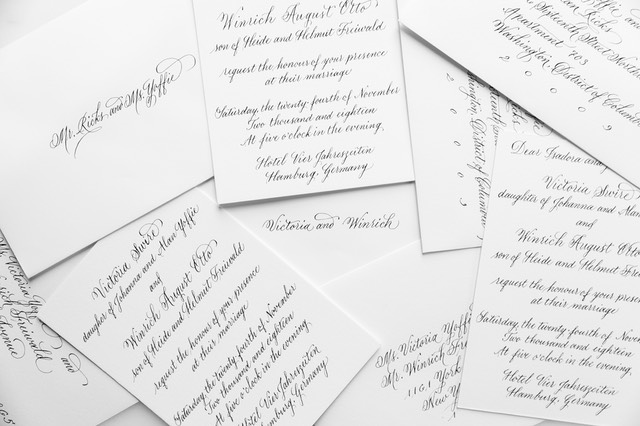 Mr. Ricks and Ms. Yoffie
Winrich August Otto
son of Heide and Helmut Freiwald
request the honour of your presence
at their marriage
Saturday, the twenty-fourth of November
Two thousand and eighteen
At five o'clock in the evening,
Hotel Vier Jahreszeiten
Hamburg, Germany
Sixteenth Street North
Apartment 703
Washington, District of Columbia
2 0 0 0 9
Victoria and Winrich
Dear Isadora and
Victoria Swire
daughter of Johanna and Alan
and
Winrich August Otto
son of Heide and Helmut Frei
request the honour of your pres
at their marriage
Saturday, the twenty-fourth of Nove
Two thousand and eighteen
At five o'clock in the evening,
Hotel Vier Jahreszeiten
Hamburg, Germany
Victoria Swire
daughter of Johanna and Alan Yoffie
and
Winrich August Otto
son of Heide and Helmut Freiwald
request the honour of your presence
at their marriage
Saturday, the twenty-fourth of November
Two thousand and eighteen
At five o'clock in the evening,
Hotel Vier Jahreszeiten
Hamburg, Germany
Ms. Victoria Yoffie
Mr. Winrich
1161 York
New